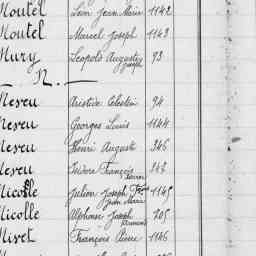 Moutel Léon Jean Marie 1142
Moutel Marcel Joseph 1143
Mury Léopold Auguste Joseph 93
N.
Neveu Aristide Célestin 94
Neveu Georges Louis 1144
Neveu Henri Auguste 346
Neveu Isidore François 343
Nicolle Julien Joseph Jean Marie 1145
Nicolle Alphonse Joseph 205
Nivet François Pierre 1146